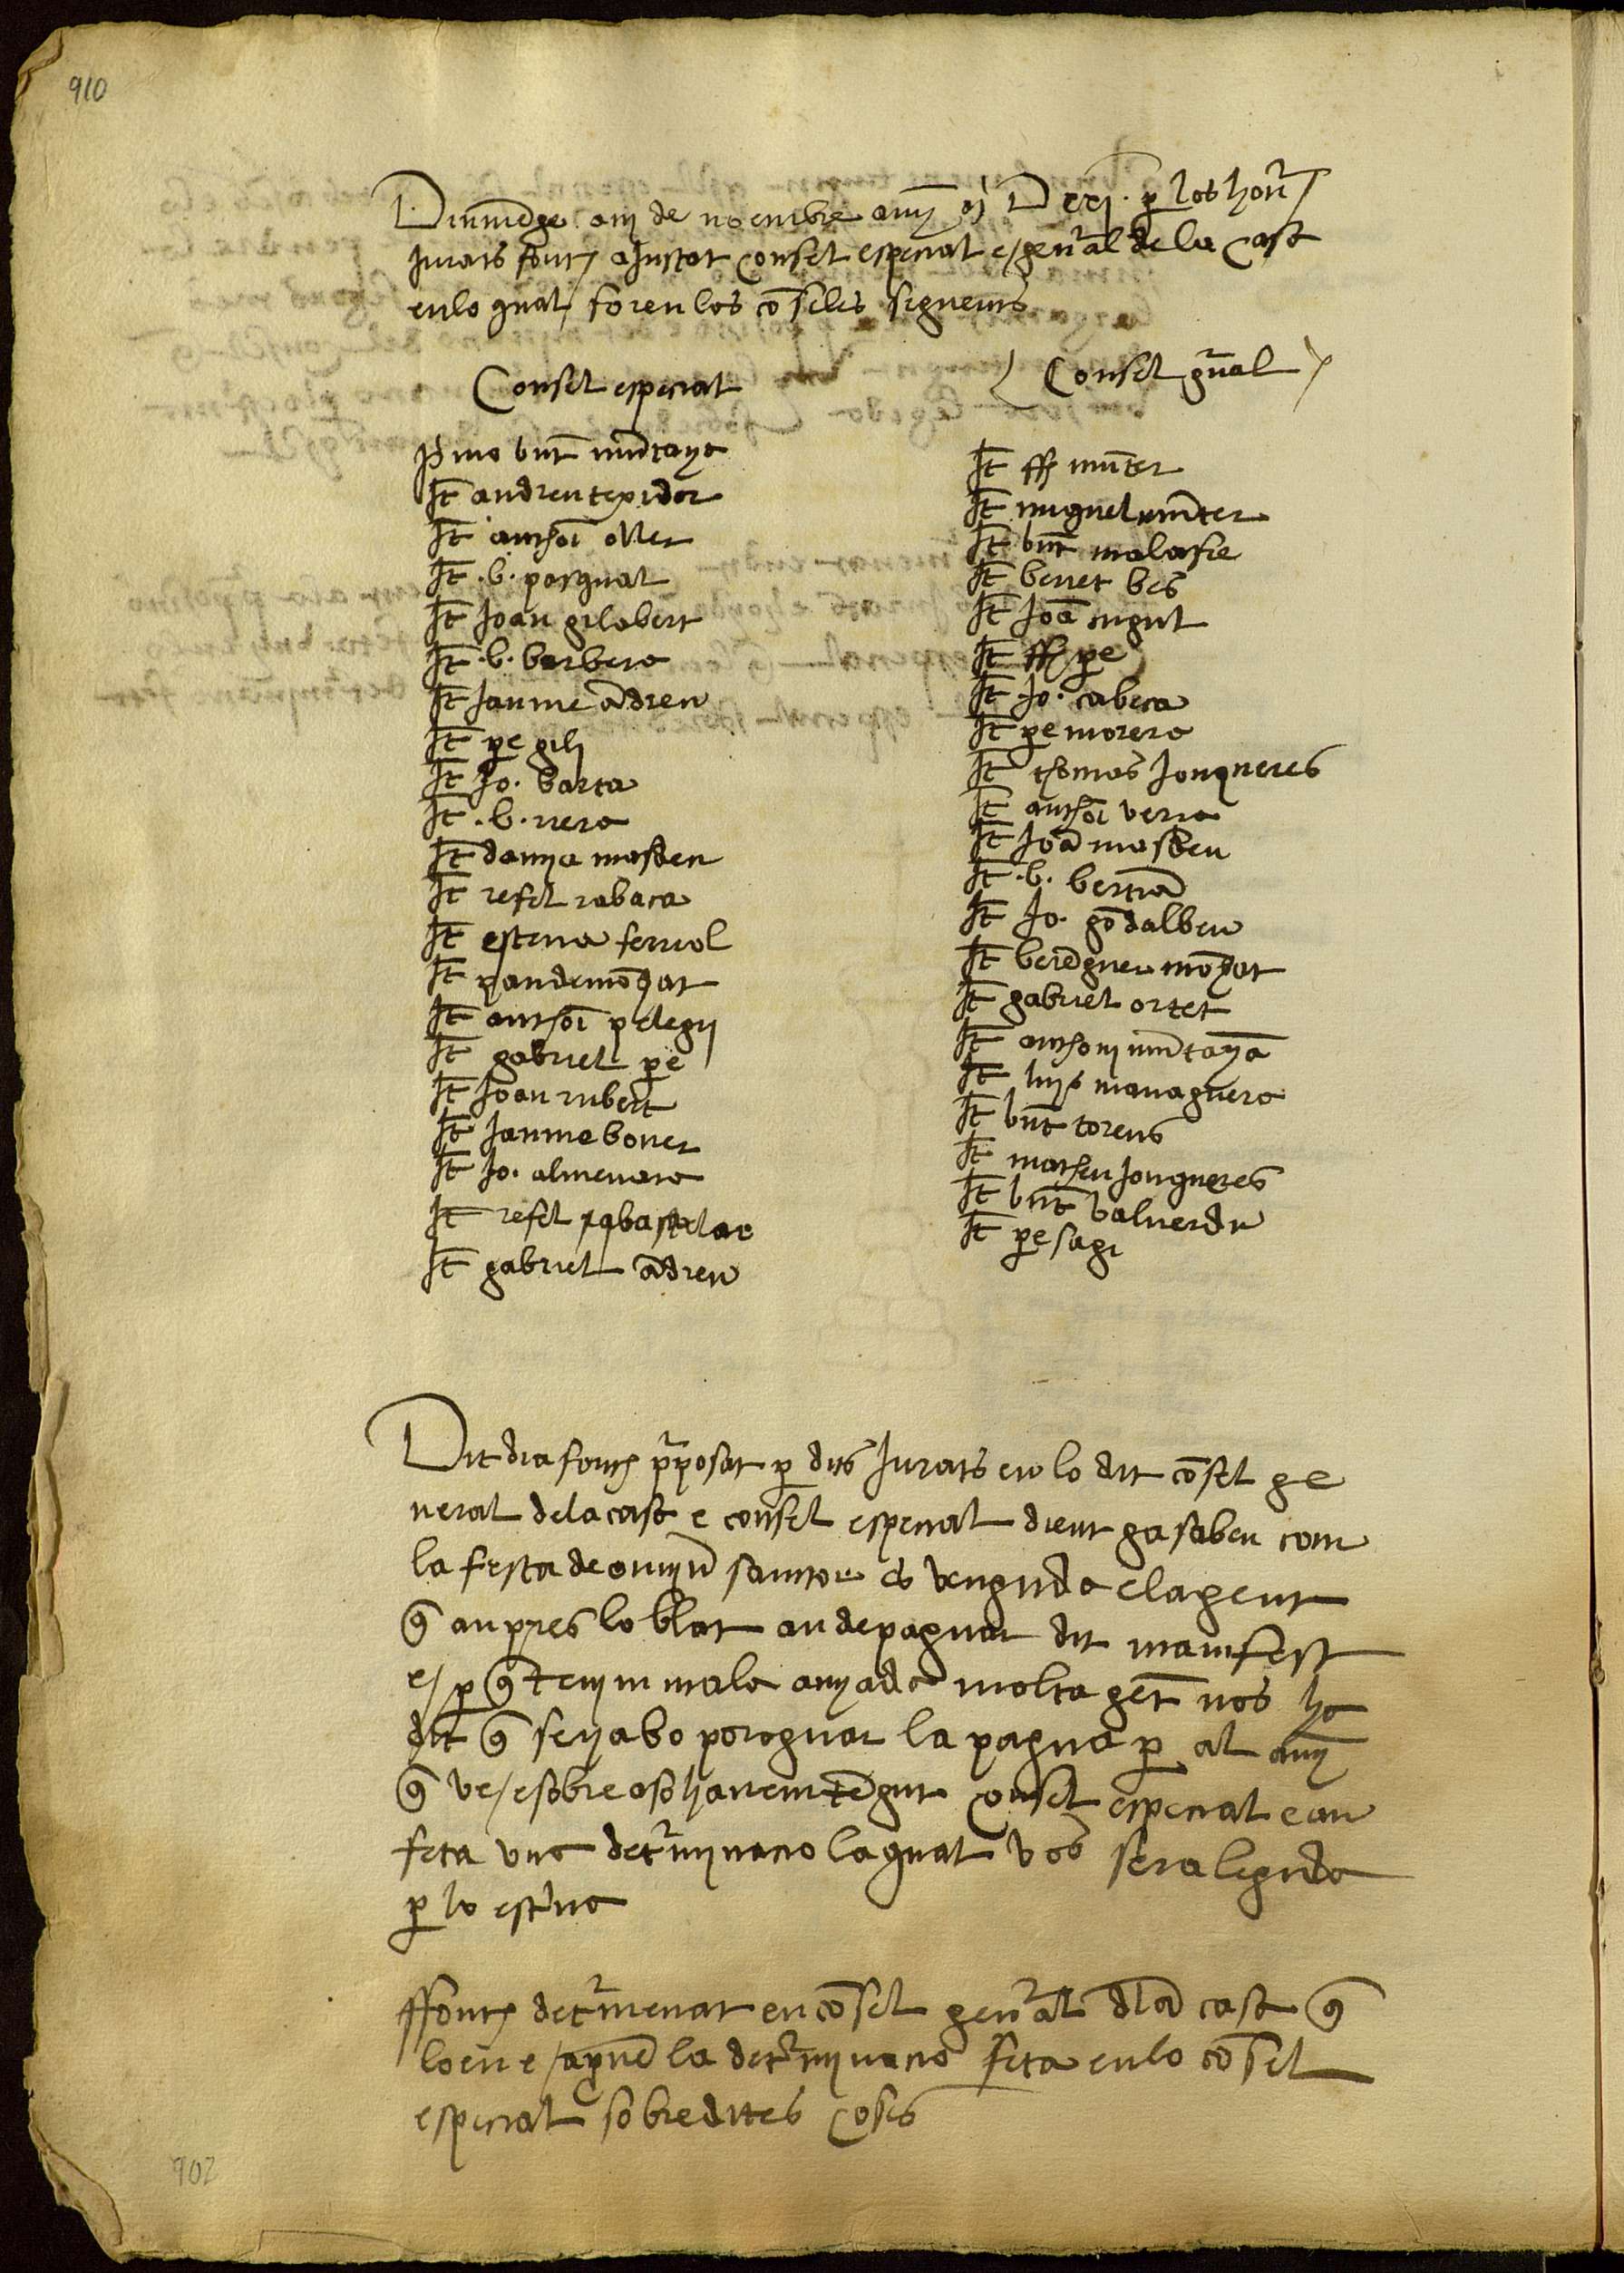 910
Diumēge a iij de noembre any M D xxj · p los honr̃
Jurats fonch aJustat consel especial e gen̄al de la Cast
en lo qual foren los cōselés seguents
Consel especial
Pº mo bnt mūtaye
It andreu texidor
It anthoi oller
It .b. pasqual
It Joan gilabert
It .b. barbera
It Jaume ādreu
It pe gili
It Jo. barta
It .b. vera
It damia masdeu
It rafel rabaca
It esteve ferriol
It pau de mōgat
It anthoi pelegri
It gabriel pe
It Joan rubert
It Jaume bover
It Jo. almenara
It rafel
It gabriel ādreu
Consel gñal
It ff mūter
It miguel mūter
It bnt malafie
It benet bes
It Joā cugul
It ff pe
It Jo. cabeca
It pe morera
It thomas Jonqueres
It anthoi verra
It Joā masdeu
It .b. bertrā
It Jo. gōdalbeu
It berēguer mōgat
It gabriel ortet
It anthoni mūtaya
It luys managuera
It bnt torens
It matheu Jonqueres
It bnt valuerdu
It pe sagi
Dit dia fonch pposat p dits Jurats en lo dit cōsel ge
neral de la cast e consel especial dient ja saben com
la festa de omniũ santor es venguda e la gent
q̄ an pres lo blat an de paguar dit manifest
e p q̄ tenim mala anyada molta gēt nos ha
dit q̄ seria bo poroguar la pagua p al any
q̄ ve e sobre aso havem tēgut consel especial e an
feta una det̃minacio la qual vos sera legida
p lo escriva
ffonch det̃menat en cōsel gen̄al dla cast q̄
loen e apve la det̃minacio feta en lo cōsel
especial sobre dites coses
902